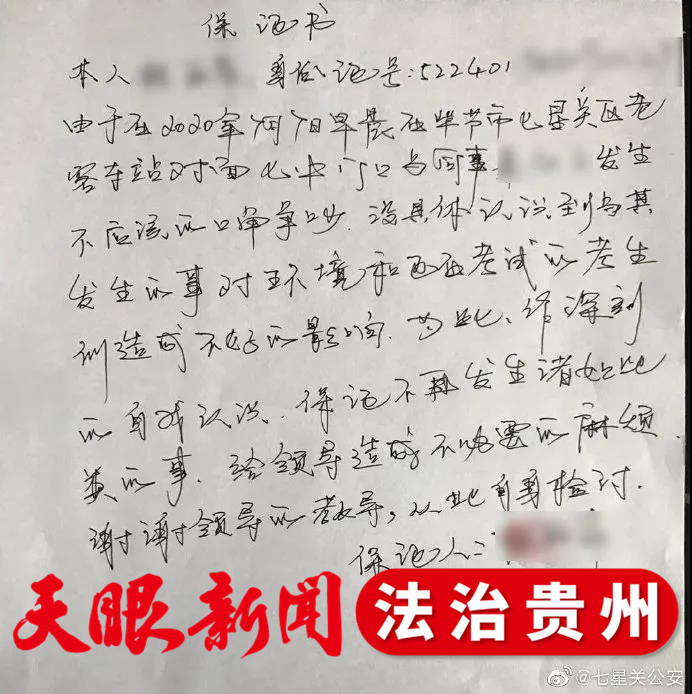 保证书
本人 身份证号:522401
由于在2020年7月7日早晨在毕节市七星关区老
客车站对面七中门口与同事 发生
不应该的口角争吵.没具体认识到与其
发生的事对环境和正在考试的考生
们造成不好的影响.为此、作深刻
的自我认识.保证不再发生诸如此
类的事.给领导造成不必要的麻烦
谢谢领导的教导,以此自我检讨.
保证人:
天眼新闻 法治贵州
@七星关公安